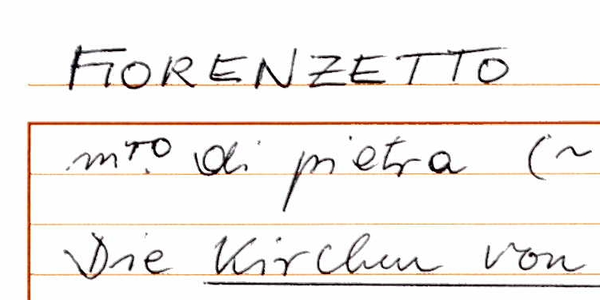 FIORENZETTO
m.ᵀᴼ di pietra (~
Die Kirchen von